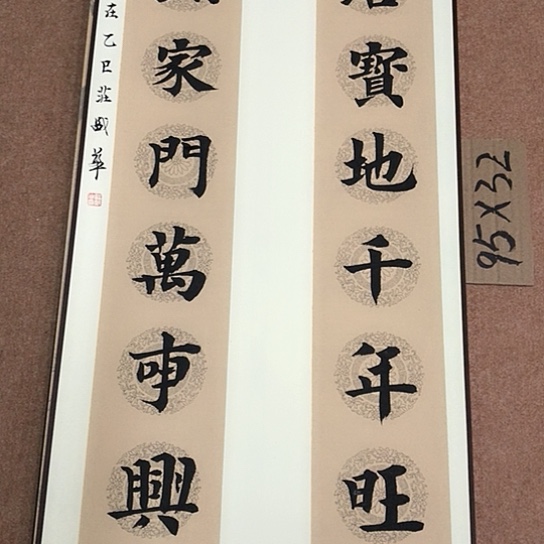 寶地千年旺
家門萬事興
在乙巳莊
華
95X32